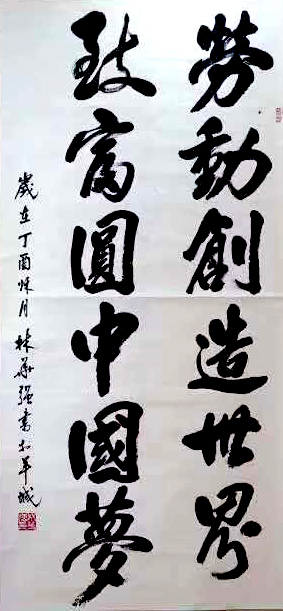 勞動創造世界
致富圓中國夢
歲在丁酉秋月林華强書於羊城